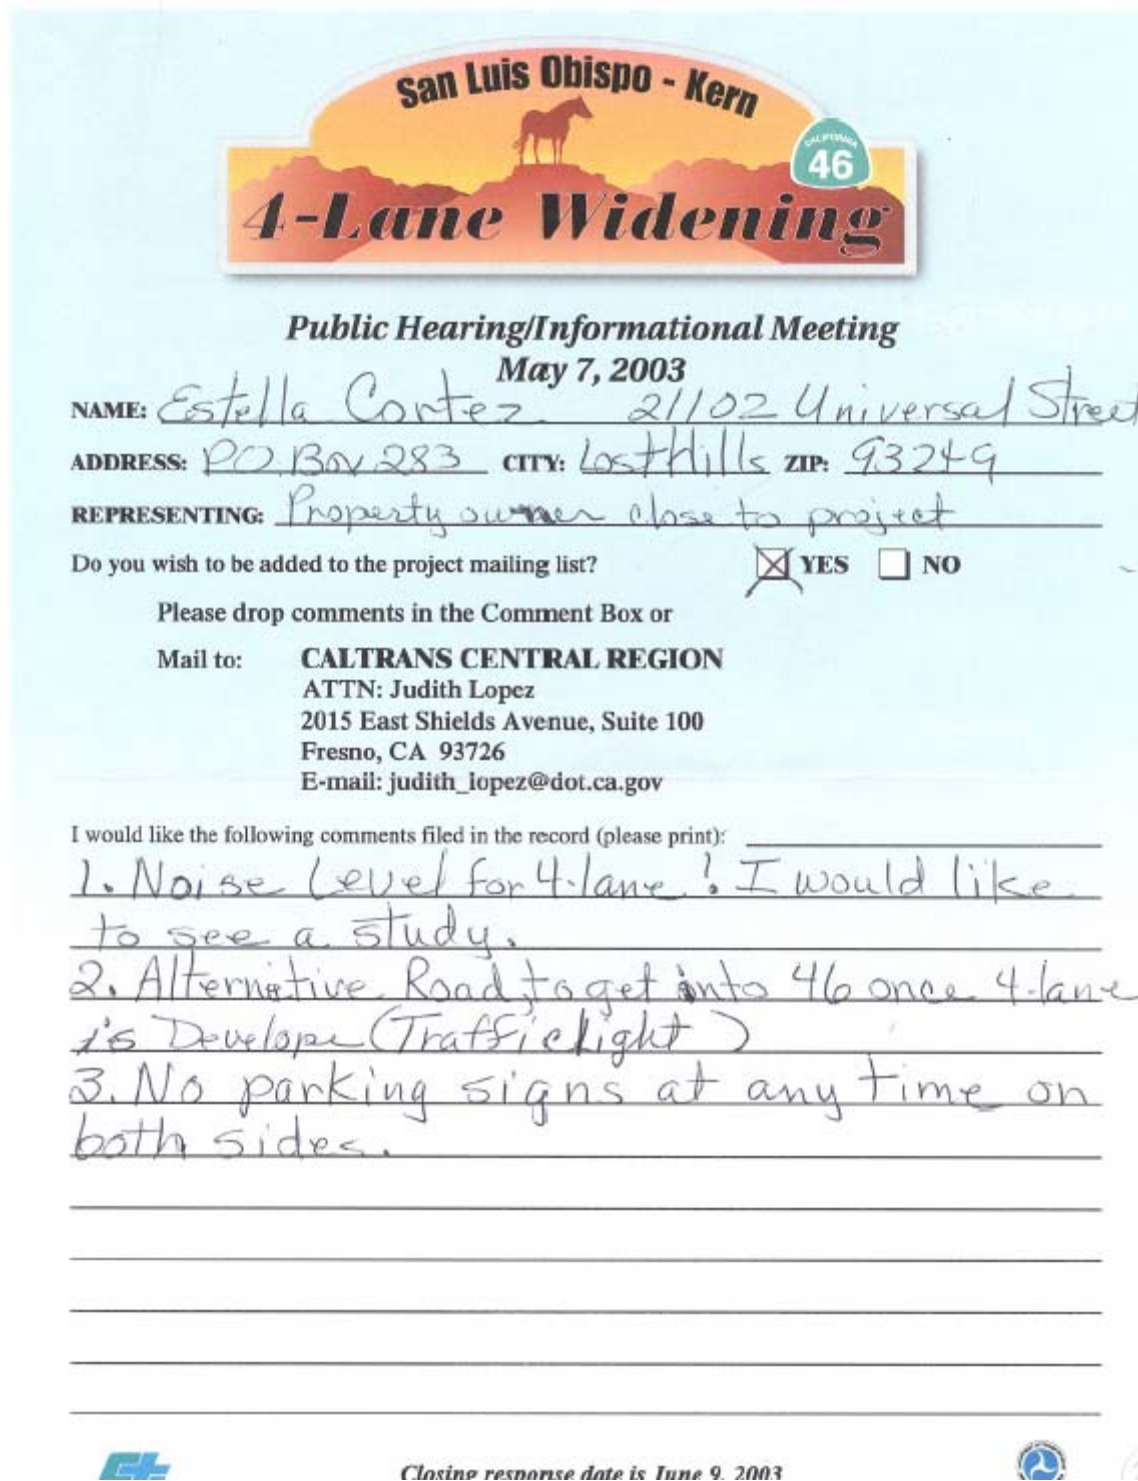 San Luis Obispo - Kern
CALIFORNIA
46
4-Lane Widening
Public Hearing/Informational Meeting
May 7, 2003
NAME: Estella Cortez 21102 Universal Street
ADDRESS: PO Box 283 CITY: Lost Hills ZIP: 93249
REPRESENTING: Property owner close to project
Do you wish to be added to the project mailing list? YES NO
Please drop comments in the Comment Box or
Mail to: CALTRANS CENTRAL REGION
ATTN: Judith Lopez
2015 East Shields Avenue, Suite 100
Fresno, CA 93726
E-mail: judith_lopez@dot.ca.gov
I would like the following comments filed in the record (please print):
1. Noise Level for 4-lane! I would like
to see a study.
2. Alternetive Road to get into 46 once 4-lane
is Develope (Trafficlight)
3. No parking signs at any time on
both sides.
Closing response date is June 9, 2003